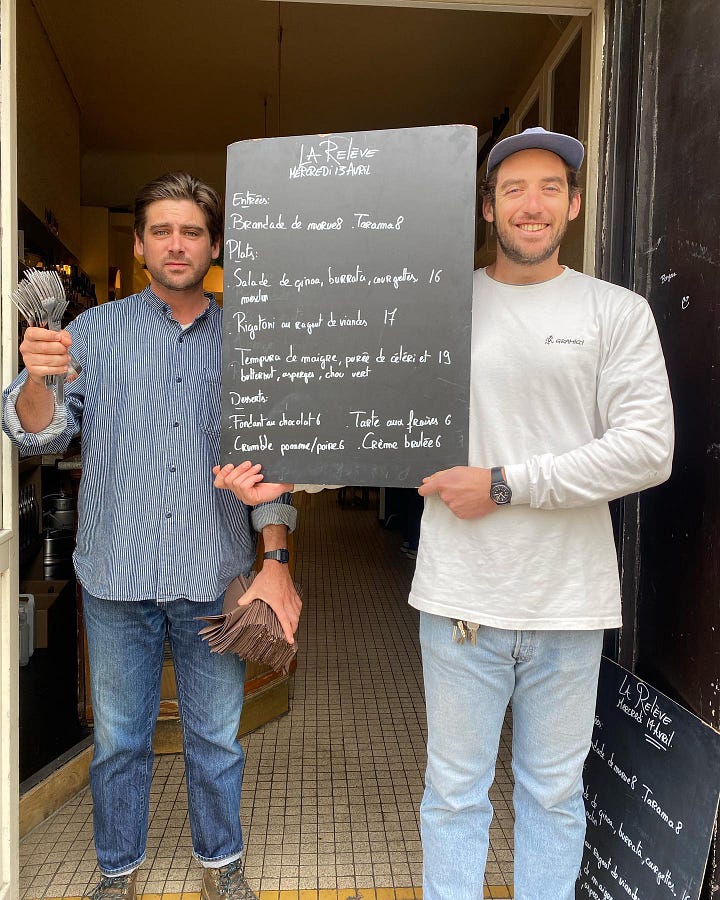 LA RELÈVE
MERCREDI 13 AVRIL
Entrées:
Brandade de morue 8 . Tarama 8
Plats:
. Salade de qinoa, burrata, courgettes, 16
mesclun
. Rigatoni au ragout de viandes 17
. Tempura de maigre, purée de céleri et 19
butternut, asperges, chou vert
Desserts:
. Fondant au chocolat 6 . Tarte aux fraises 6
. Crumble pomme/poire 6 . Crème brulée 6
GRAMICCI
LA RELÈVE
MERCREDI 14 AVRIL
andade de morue 8 . Tarama 8
de qinoa, burrata, courgettes,
au ragout de viandes